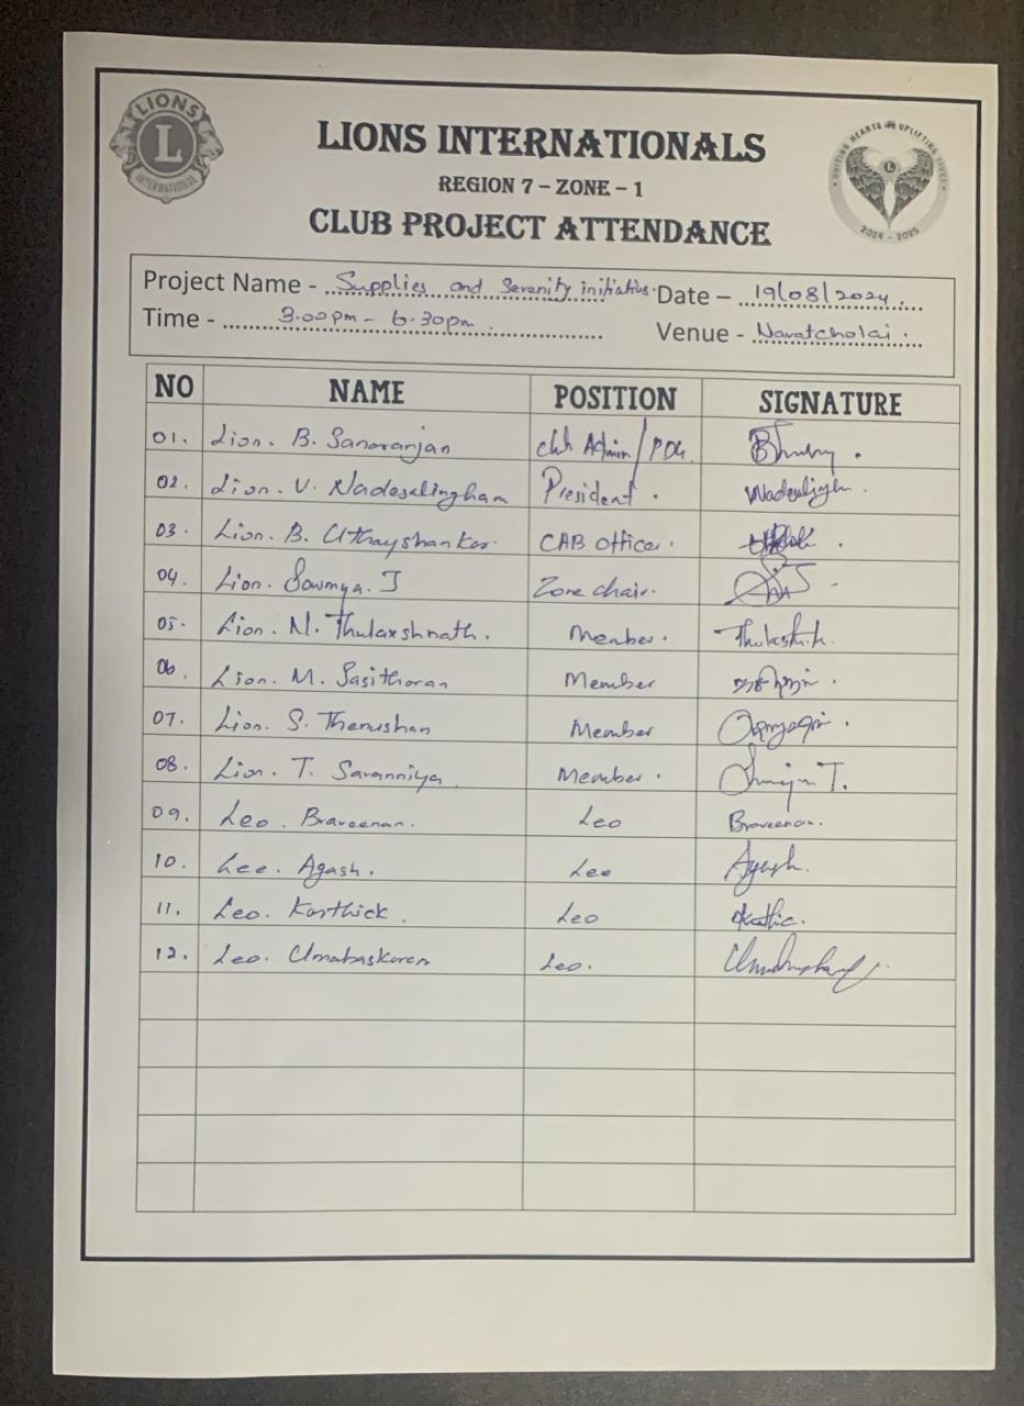 LIONS INTERNATIONAL
L
UNITING HEARTS UPLIFTING
2024 - 2025
LIONS INTERNATIONALS
REGION 7 – ZONE – 1
CLUB PROJECT ATTENDANCE
Project Name - Supplies and Serenity initiative. Date – 19/08/2024.
Time - 3.00pm - 6.30pm. Venue - Navatcholai.
NO NAME POSITION SIGNATURE
01. Lion. B. Sanoranjan club Admin/PDG.
02. Lion. V. Nadesalingham President.
03. Lion. B. Uthayshankar. CAB Officer.
04. Lion. Sowmya. J Zone chair.
05. Lion. N. Thulaxshnath. Member.
06. Lion. M. Sasitharan Member
07. Lion. S. Thenushan Member
08. Lion. T. Saranniya. Member.
09. Leo. Braveenan. Leo Braveenan.
10. Leo. Agash. Leo Agash.
11. Leo. Karthick. Leo
12. Leo. Umabaskaran Leo.